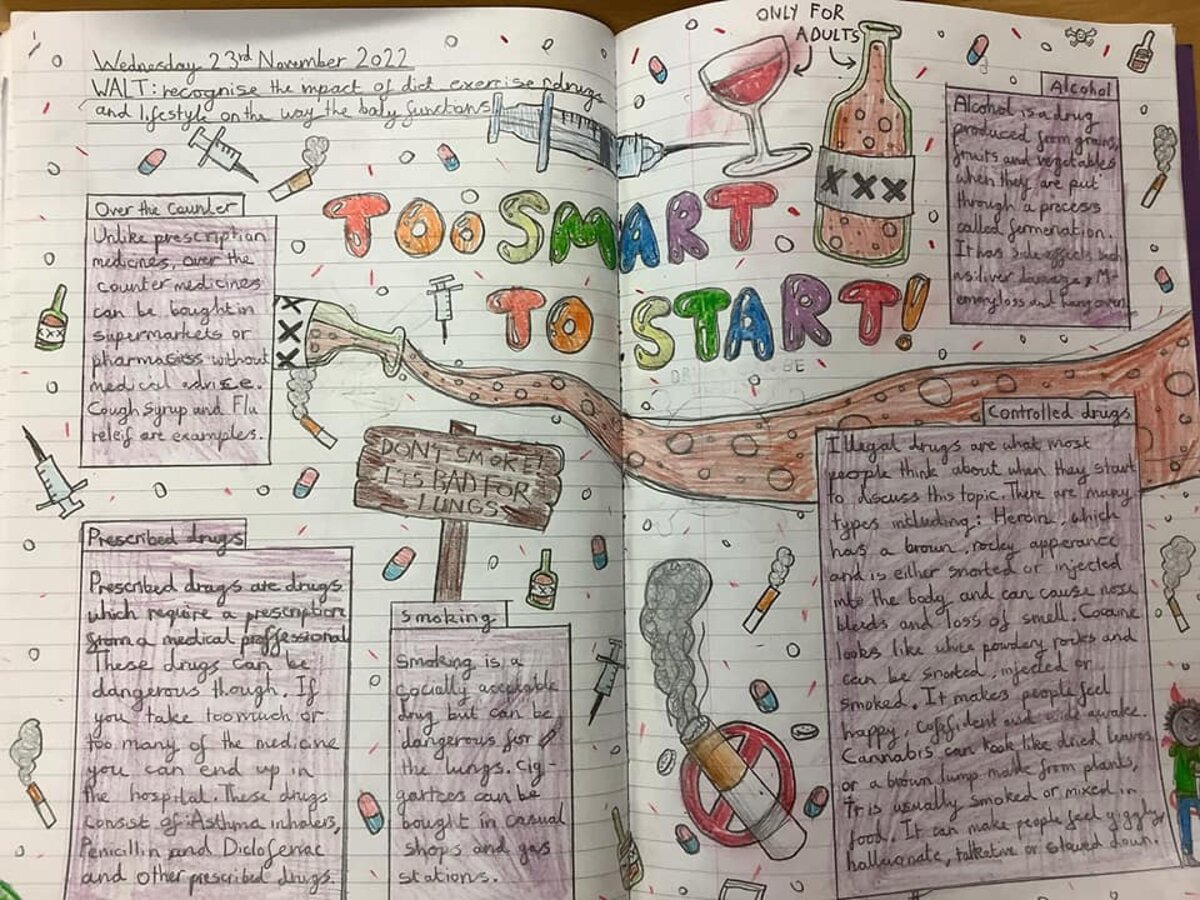 Wednesday 23rd November 2022
WALT: recognise the impact of diet exercise, drugs
and lifestyle on the way the body functions
TOO SMART
TO START!
ONLY FOR
ADULTS
XXX
Over the Counter
Unlike prescription
medicines, over the
counter medicines
can be bought in
supermarkets or
pharmacists without
medical advise.
Cough syrup and Flu
releif are examples.
XXX
DON'T SMOKE!
ITS BAD FOR
LUNGS
Prescribed drugs
Prescribed drugs are drugs
which require a prescription
from a medical proffessional
These drugs can be
dangerous though. If
you take too much or
too many of the medicine
you can end up in
the hospital. These drugs
consist of: Asthma inhalers,
Penicillin and Diclofenac
and other prescribed drugs
Smoking
Smoking is a
socially acceptable
drug but can be
dangerous for
the lungs. Cig-
can be
bought in casual
shops and gas
stations.
Alcohol
Alcohol is a drug
produced form grains,
fruits and vegetables
when they are put
through a process
called fermentation.
It has side affects such
as: liver damage, M-
emory loss and hang over
BE
Controlled drugs
Illegal drugs are what most
people think about when they start
to discuss this topic. There are many
types including: Heroin, which
has a brown, rocky apperance
and is either snorted or injected
into the body and can cause nose
bleeds and loss of smell. Cocaine
looks like white powdery rocks and
can be snorted, injected or
smoked. It makes people feel
happy, and wide awake.
Cannabis can look like dried leaves
or a brown lump made from plants,
It is usually smoked or mixed in
food. It can make people feel giggly,
talkative or slowed down.